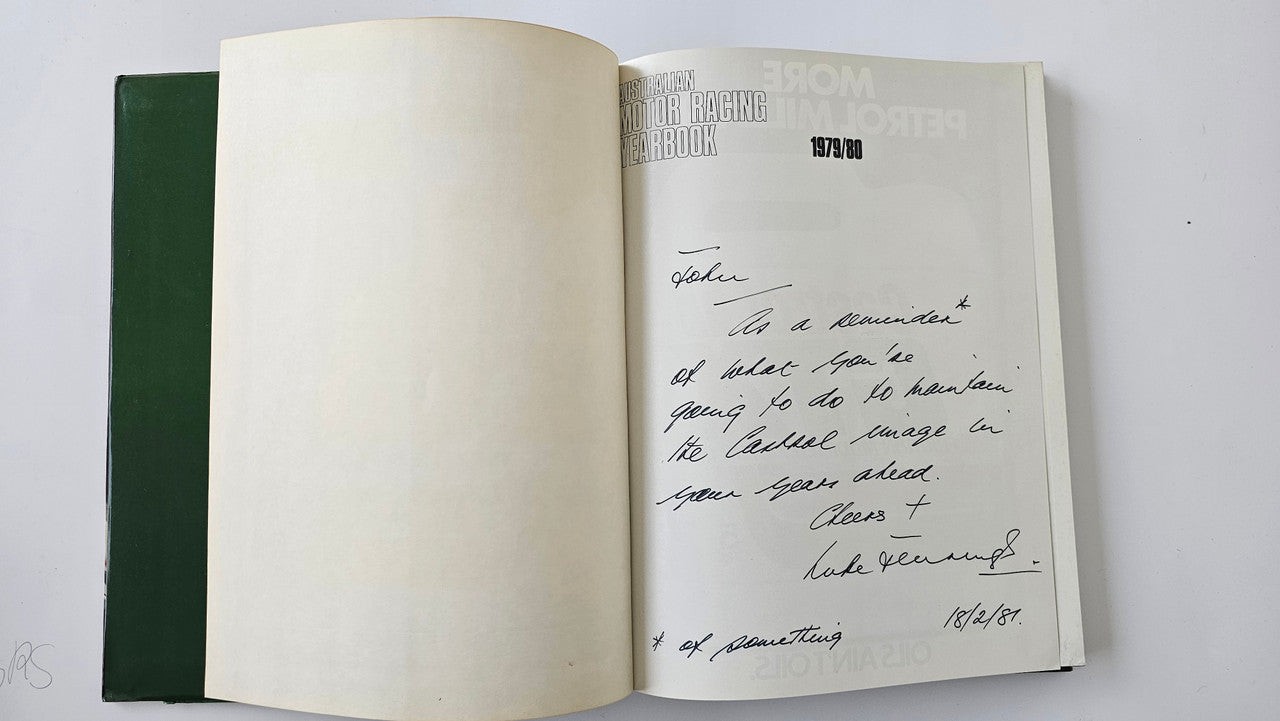 AUSTRALIAN
MOTOR RACING
YEARBOOK
1979/80
John
As a reminder*
of what you're
going to do to maintain
the Castrol image in
your years ahead.
Cheers +
Luke
18/2/81.
* of something
MORE
PETROL MIL
OILS AIN'T OILS.
RS